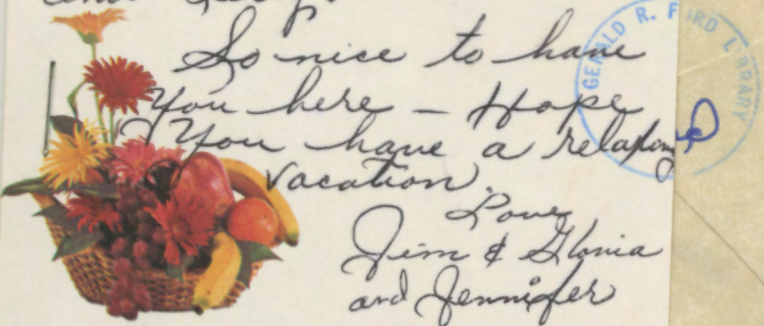 So nice to have
you here – Hope
you have a relaxing
vacation
Love
Jim & Gloria
and Jennifer
GERALD R. FORD LIBRARY